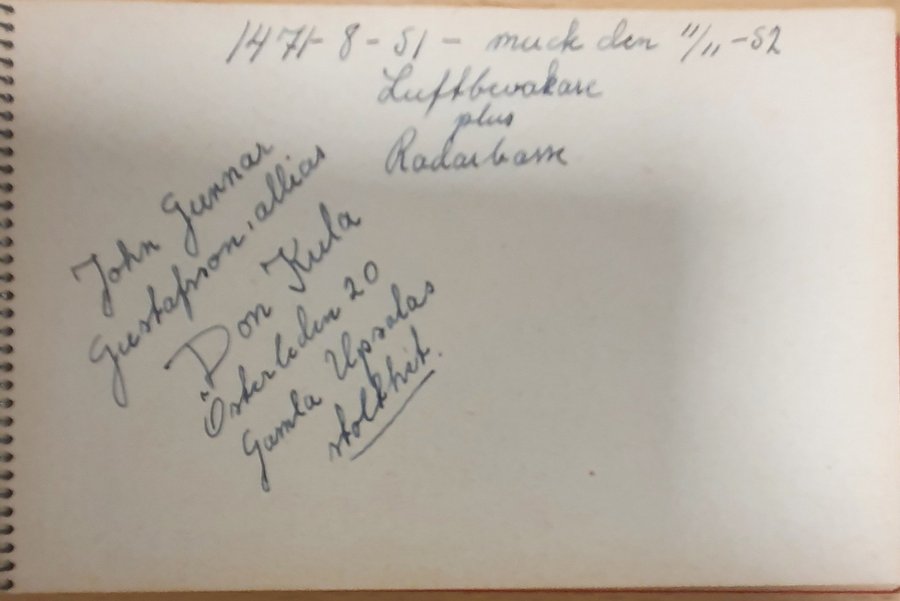 1471-8-51 - muck den 11/11-52
Luftbevakare
plus
Radarbasse
John Gunnar
Gustafsson, allias
Don Kula
Österleden 20
Gamla Upsalas
stolthet.